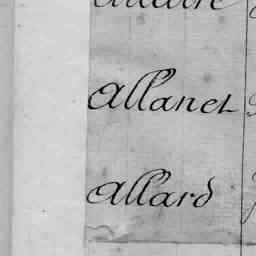 Allanet
Allard